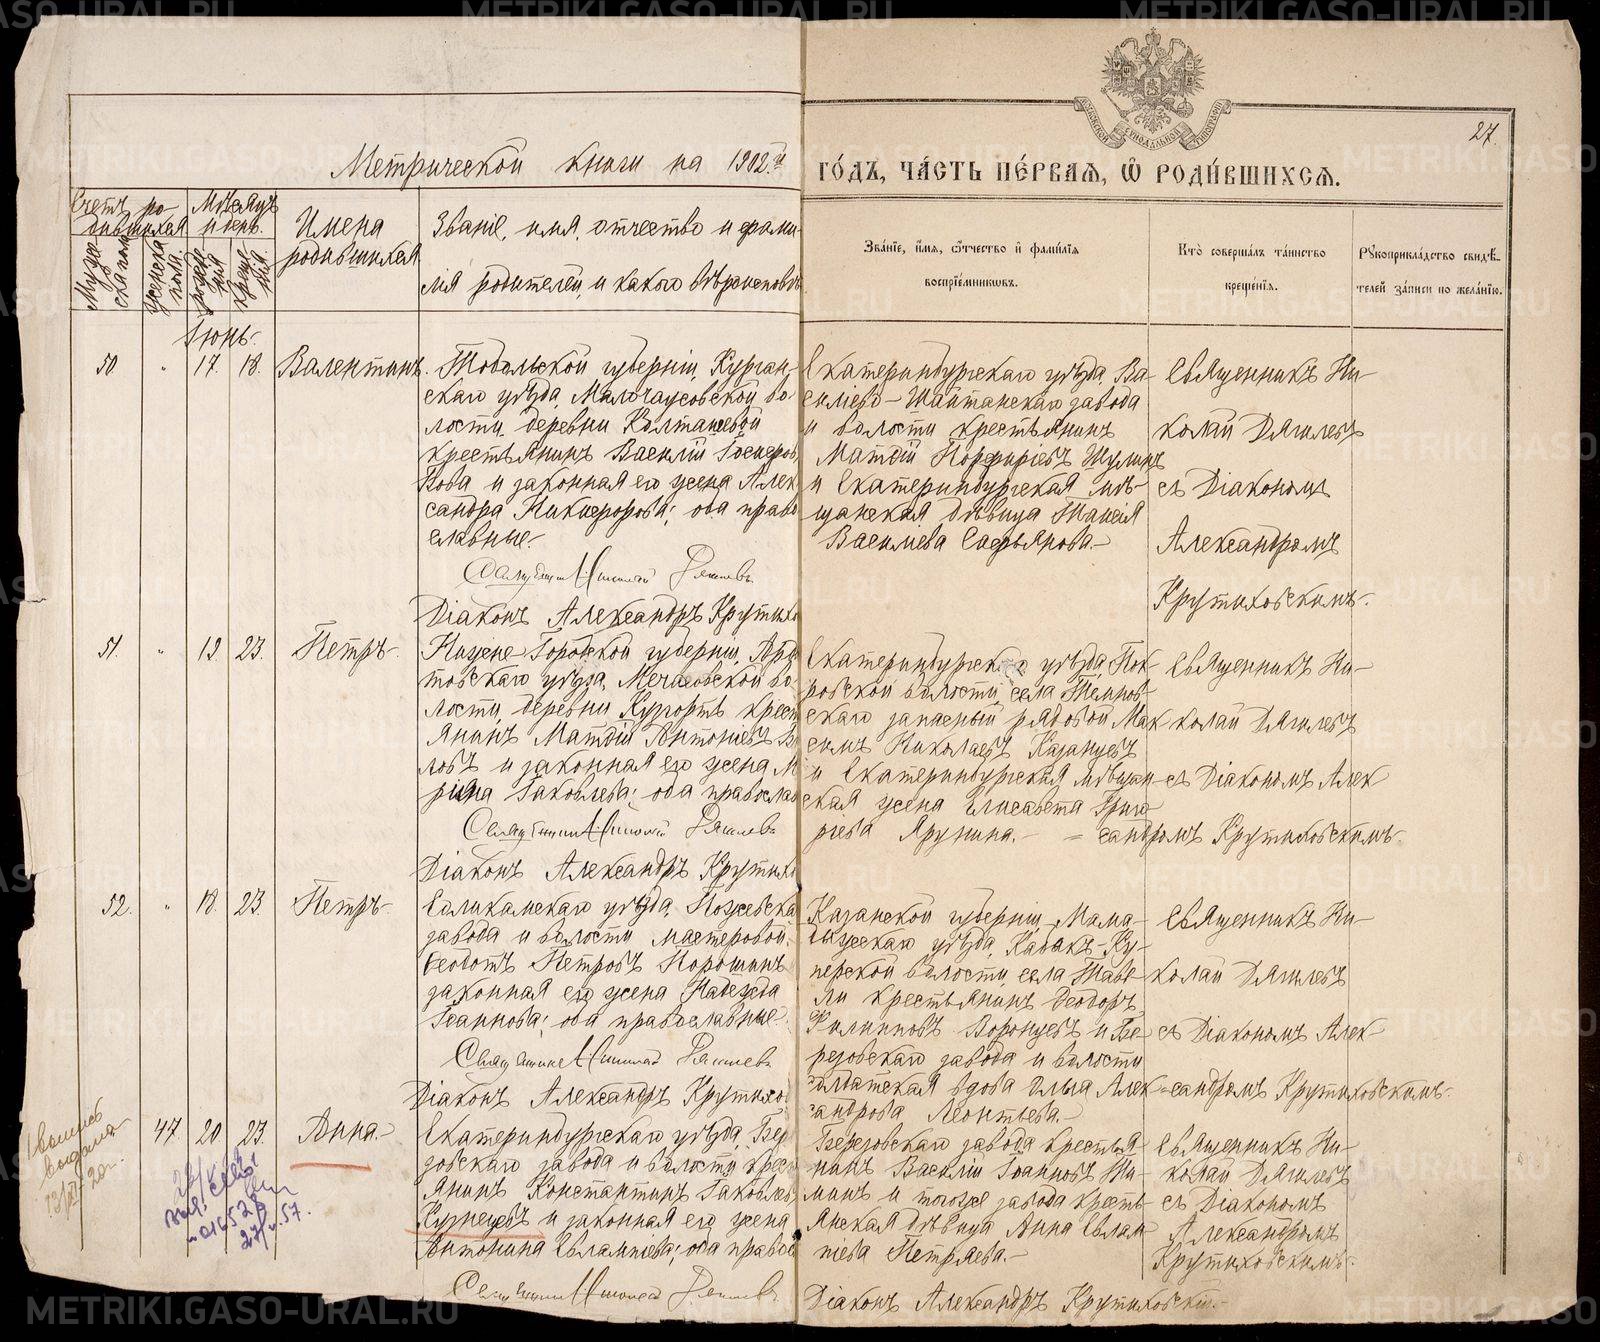 27.
Метрической книги на 1902.й
го́дъ, ча́сть пе́рвая, ѽ роди́вшихся.
Счетъ ро-
дившихся
Мѣсяцъ
и день.
Мужеска пола
женска пола.
рожденія
крещенія
Имена
родившихся
Званіе, имя, отчество и фами-
лія родителей, и какого вѣроисповѣд
Зва́нїе, и́мя, ѻ҆́тчество и҆ фамн́лїя
воспрїе́мникѡвъ.
Кто̀ соверша́лъ та́инство
креще́нїя.
Рꙋкоприкла́дство свидѣ́-
телей за́писи по жела́нїю.
Іюнь.
50 " 17. 18. Валентинъ.
Тобольской губерніи, Курган-
скаго уѣзда, Малочаусовской во-
лости, деревни Колташевой
крестьянинъ Василій
и законная его жена Алек
сандра Никифорова; оба право
славные.
Діаконъ Александръ Крутихо
Екатеринбургскаго уѣзда, Ва-
сильево-Шайтанскаго завода
и волости крестьянинъ
Матѳій Порфирьевъ Шулинъ
и Екатеринбургская мѣ-
щанская дѣвица Таисія
Васильева Сафьянова.
Священникъ Ни-
колай Дягилевъ
съ Діакономъ
Александромъ
Крутиховскимъ.
51. " 19 23. Петръ.
Ниже-Городской губерніи, Арда
товскаго уѣзда, волости, деревни Кужорть крест
янинъ Матѳій Антоніевъ
ловъ и законная его жена М
рина Іаковлева; оба православ
Діаконъ Александръ Крутихо
Екатеринбургскаго уѣзда, Пок-
ровской волости, села Темнов-
скаго запасный рядовой Мак
симъ Николаевъ Казанцевъ
и Екатеринбургская мѣщан
ская жена Елисавета Григо
рьева Ярунина.
Священникъ Ни-
колай Дягилевъ
съ Діакономъ Алек
= сандромъ Крутиховскимъ.
52. " 18. 23. Петръ.
Соликамскаго уѣзда, Пожевска
завода и волости мастеровой
Ѳеодотъ Петровъ Порошинъ
законная его жена Надежда
Іоаннова; оба православные.
Діаконъ Александръ Крутихо
Казанской губерніи, Мама-
дышскаго уѣзда, Кабакъ-Ку-
перской волости, села
крестьянинъ Ѳеодоръ
Филипповъ Воронцевъ и Бе-
резовскаго завода и волости
солдатская вдова Алек
сандрова Леонтьева.
Священникъ Ни-
колай Дягилевъ
съ Діакономъ Алек-
=сандромъ Крутиховскимъ.
47 20 23. Анна.
Екатеринбургскаго уѣзда, Бер
зовскаго завода и волости крес
янинъ Константинъ Іаковлев
Кузнецовъ и законная его жена
Антонина Евлампіева; оба правос
Березовскаго завода крестья
нинъ Василій Іоанновъ
и тогоже завода кресть
янская дѣвица Анна Евлам
піева Петряева.
Священникъ Ни-
колай Дягилевъ
съ Діакономъ
Александромъ
Крутиховскимъ.
Діаконъ Александръ Крутиховскій.
METRIKI.GASO-URAL.RU